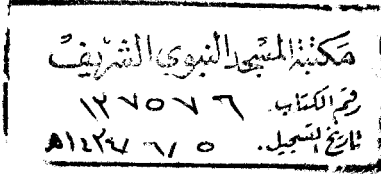 مكتبة المسجد النبوي الشريف
رقم الكتاب. ١٢٧٥٠٧٦
تاريخ التسجيل. ٥ / ٦ / ١٤٢٧هـ